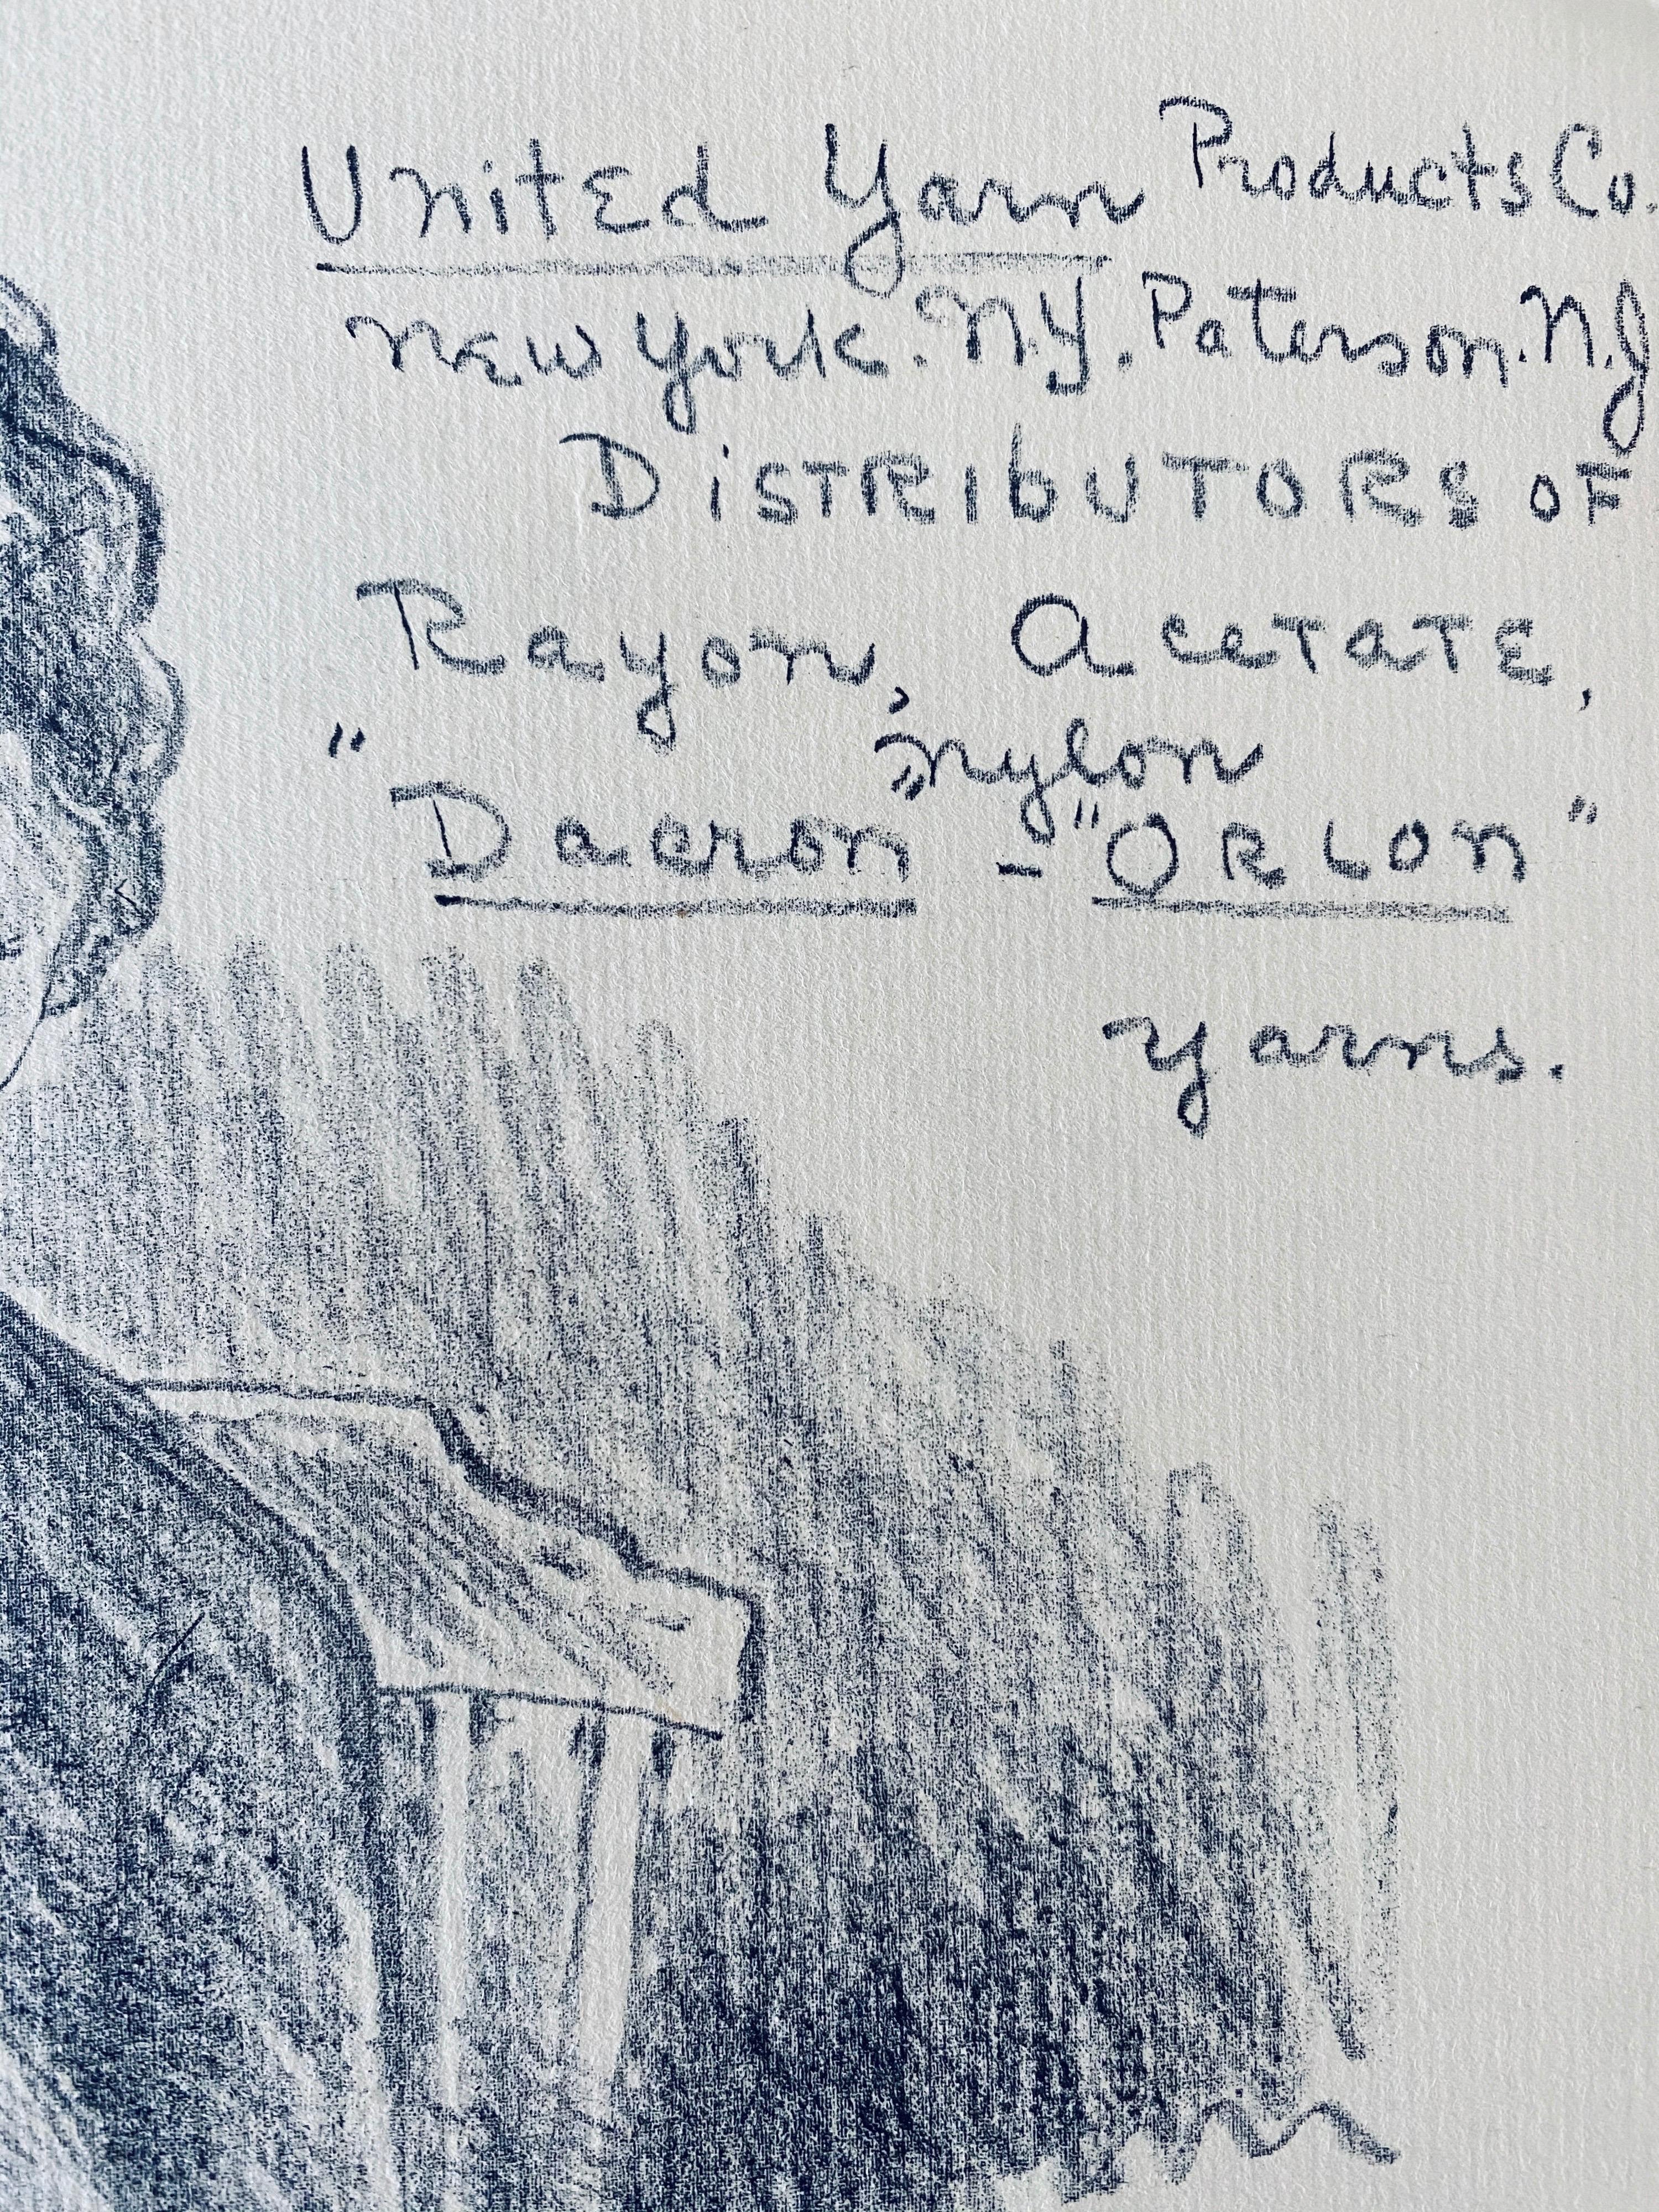 United Yarn Products Co.
New York. N.Y. Paterson. N.J
DiSTRIbUTORS OF
Rayon, Acetate,
, nylon
" Dacron " - "ORLON"
yarns.